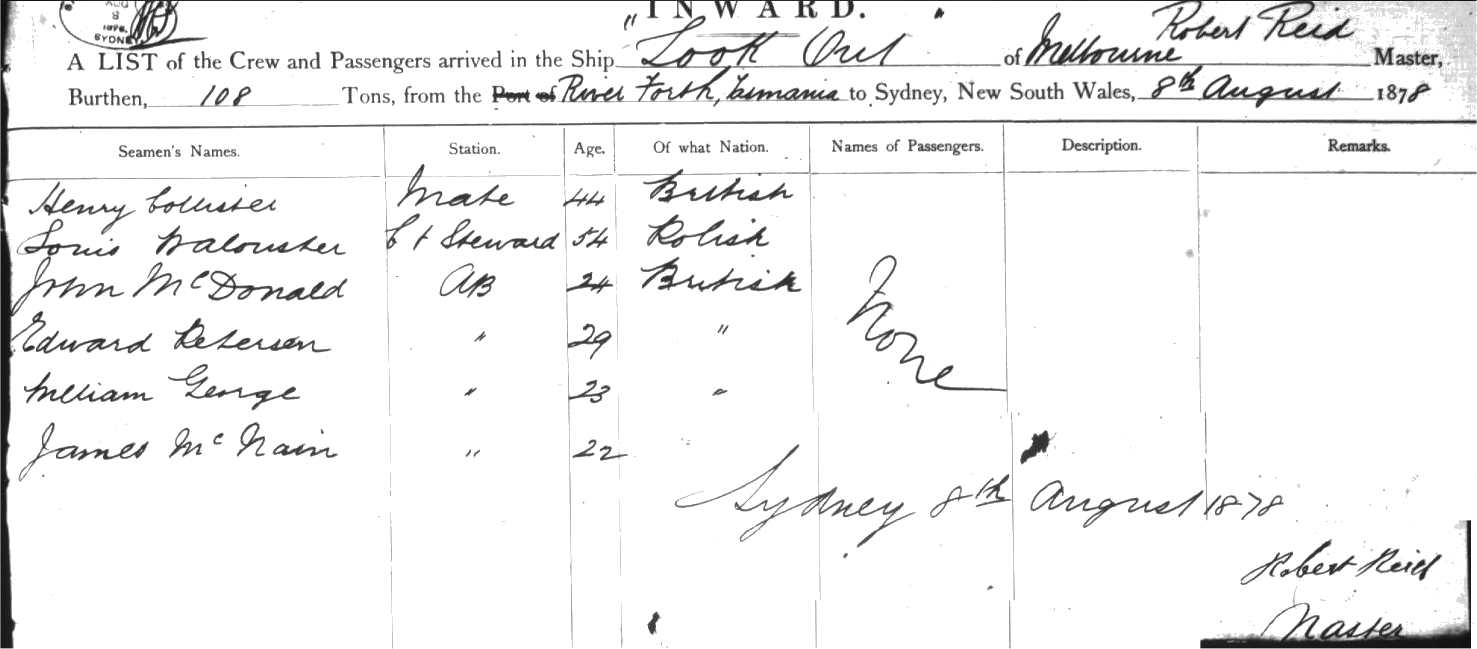 AUG
8
1878
SYDNEY
INWARD.
Robert Reid
A LIST of the Crew and Passengers arrived in the Ship "Look Out" of Melbourne Master,
Burthen, 108 Tons, from the Port of River Forth, Tasmania to Sydney, New South Wales, 8th August 1878
Seamen's Names. Station. Age. Of what Nation. Names of Passengers. Description. Remarks.
Henry Collister Mate 44 British
Louis Walouster C & Steward 54 Polish
John McDonald AB 24 British
None
Edward Petersen " 29 "
William George " 23 "
James McNain " 22 "
Sydney 8th August 1878
Robert Reid
Master